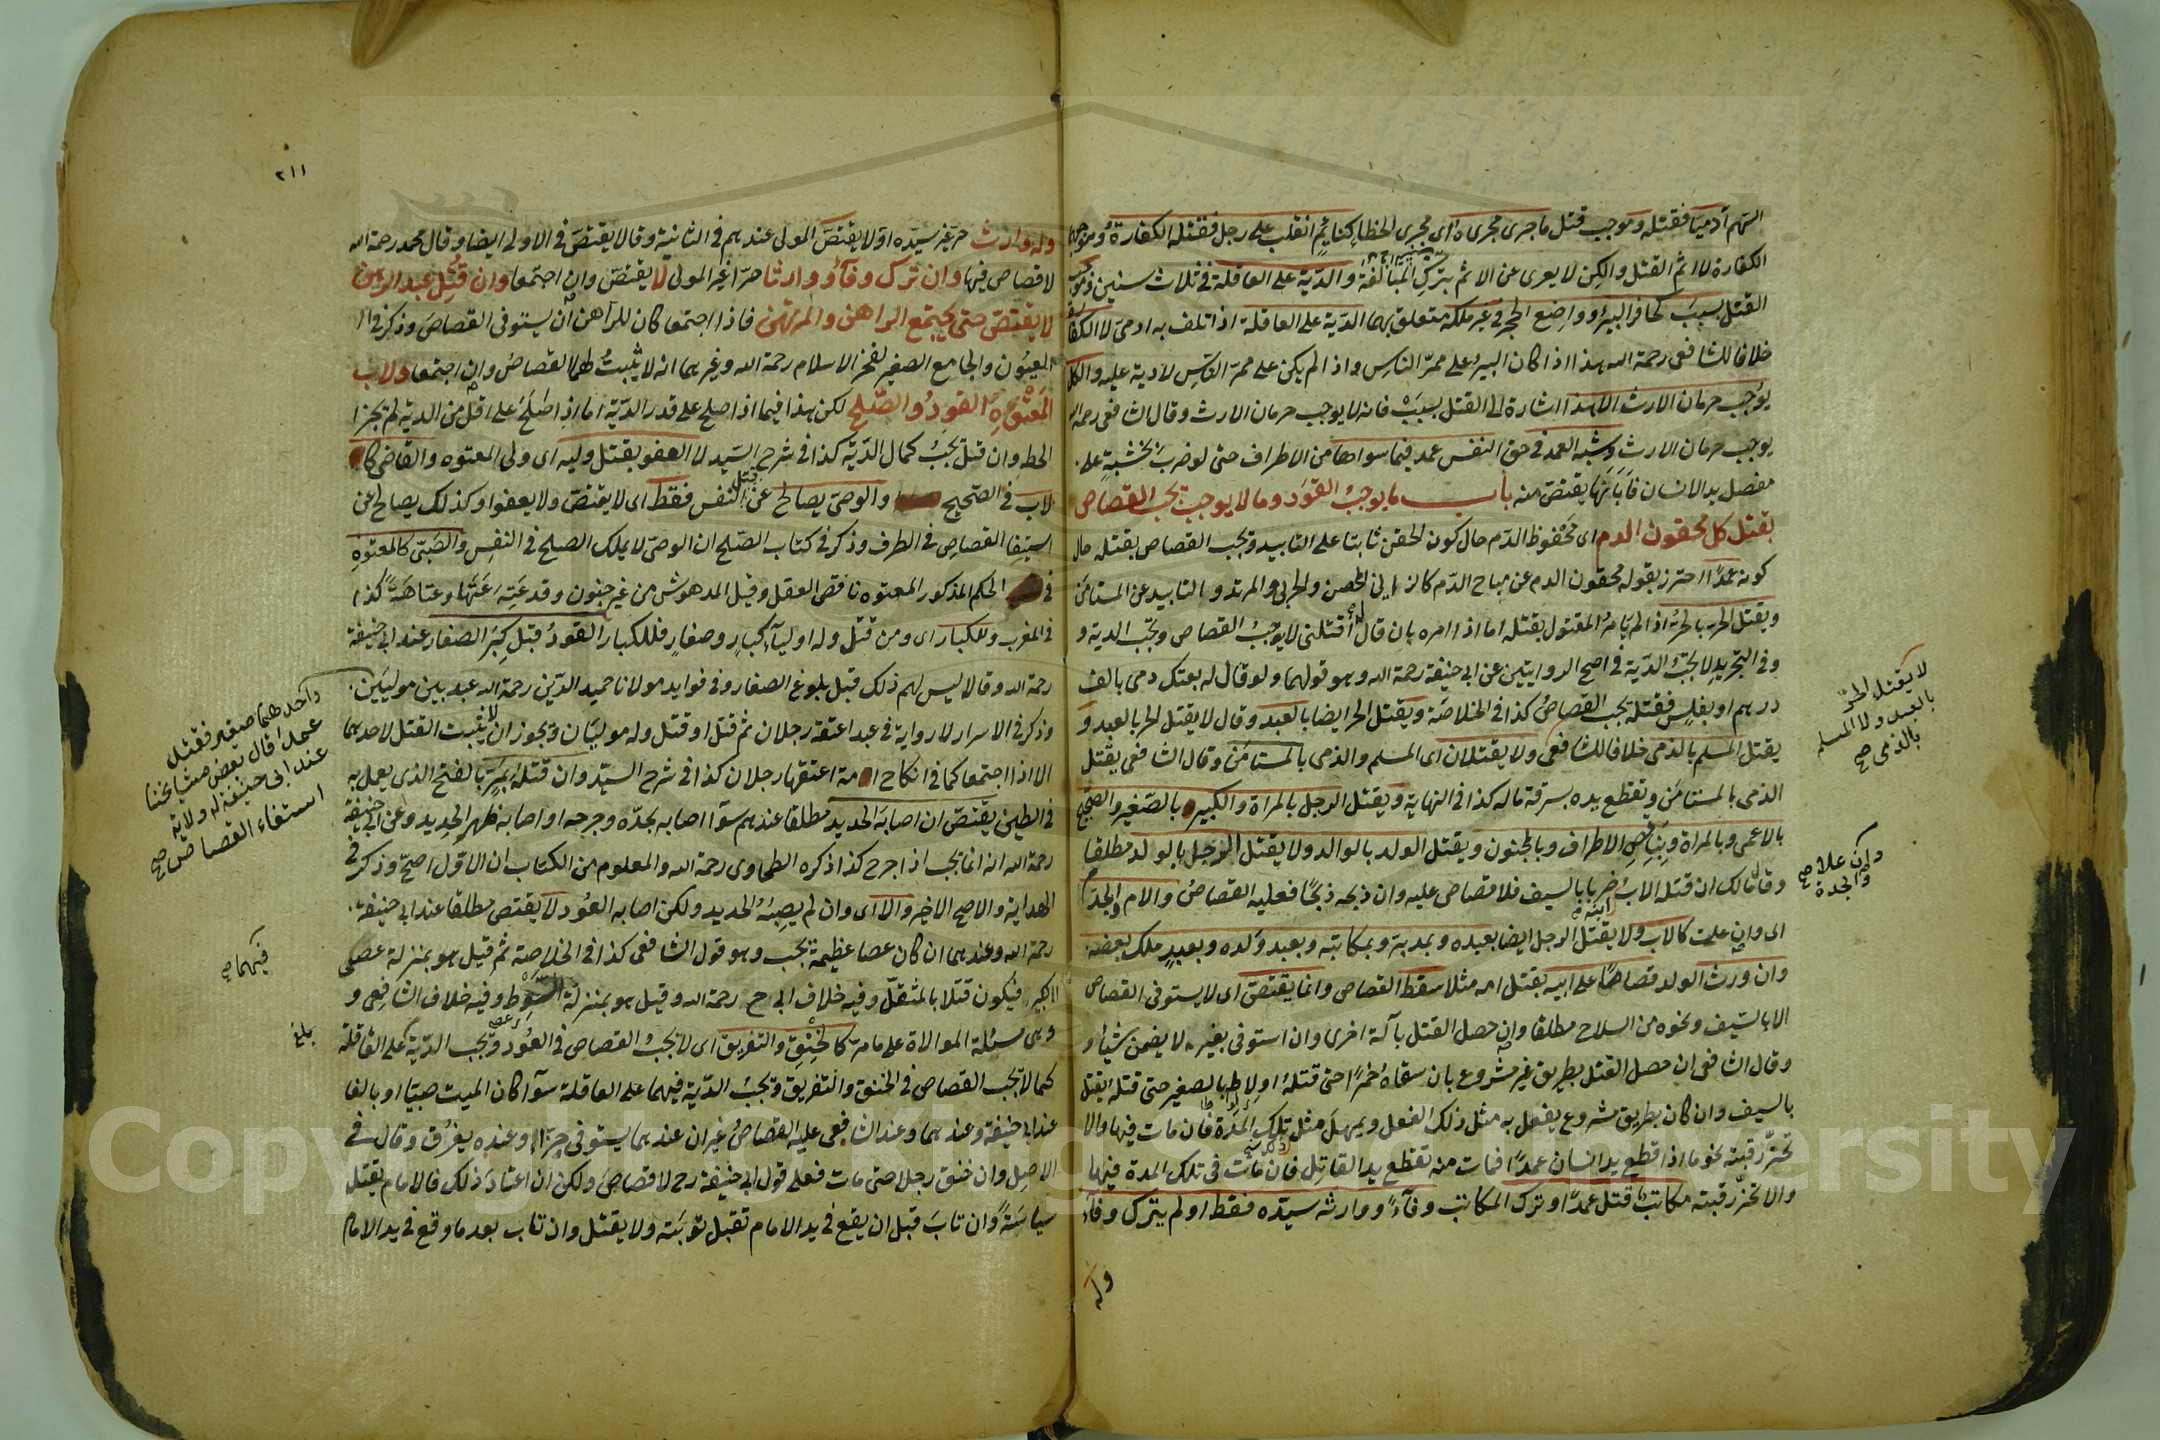 السهم آدميا فقتله وموجب قتل ما جرى مجراه اى مجرى الخطاء كنائم انقلب على رجل فقتله الكفارة وموجبها
الكفارة لا اثم القتل ولكن لا يعرى عن الاثم بترك المبالغة والدية على العاقلة فى ثلاث سنين وموجب
القتل بسبب كحافر البير وواضع الحجر فى غير ملكه متعلق بهما الدية على العاقلة اذا تلف به ادمى لا الكفارة
خلافا للشافعى رحمة الله هذا اذا كان البير على ممر الناس واذا لم يكن على ممر الناس لا دية عليه والكل
يوجب حرمان الارث الا هذا اشارة الى القتل بسبب فانه لا يوجب حرمان الارث وقال الشافعى رحمه الله
يوجب حرمان الارث وشبه العمد فى حق النفس عمد فيما سواها من الاطراف حتى لو ضرب بخشبة على
مفصل يد الانسان فابانها يقتص منه باب ما يوجب القود وما لا يوجب يجب القصاص
بقتل كل محقون الدم اى محفوظ الدم حال كون الحقن ثابتا على التابيد ويجب القصاص بقتله حال
كونه عمدا احترز بقوله محقون الدم عن مباح الدم كالزانى المحصن والحربى والمرتد و التابيد عن المستامن
ويقتل الحر بالحر اذا لم يامر المقتول بقتله اما اذا امره بان قال اقتلنى لا يوجب القصاص ويجب الدية و
وفى التجريد لا يجب الدية فى اصح الروايتين عن ابى حنيفة رحمة الله وهو قولهما ولو قال له بعتك دمى بالف
درهم او بفلس فقتله يجب القصاص كذا فى الخلاصة ويقتل الحر ايضا بالعبد وقال لا يقتل الحر بالعبد و
يقتل المسلم بالذمى خلافا للشافعى ولا يقتلان اى المسلم والذمى بالمستامن وقال الشافعى يقتل
الذمى بالمستامن ويقطع يده بسرقة ماله كذا فى النهاية ويقتل الرجل بالمراة والكبير بالصغير والصحيح
بالاعمى وبالمراة وبناقص الاطراف وبالمجنون ويقتل الولد بالوالد ولا يقتل الرجل بالولد مطلقا
وقال مالك ان قتله الاب ضربا بالسيف فلا قصاص عليه وان ذبحه ذبحا فعليه القصاص والام والجد
اى وان علت كالاب ولا يقتل الرجل ايضا بعبده وبمدبره وبمكاتبه وبعبد ولده وبعبد ملك بعضه
وان ورث الولد قصاصا على ابيه بقتل امه مثلا سقط القصاص وانما يقتص اى لا يستوفى القصاص
الا بالسيف ونحوه من السلاح مطلقا وان حصل القتل بآلة اخرى وان استوفى بغيره لا يضمن شيئا و
وقال الشافعى ان حصل القتل بطريق غير مشروع بان سقاه خمرا حتى قتله او لاط بالصغير حتى قتله يقتل
بالسيف وان كان بطريق مشروع يفعل به مثل ذلك الفعل ويمهل مثل تلك المدة فان مات فيها والا
تحز رقبته نحو ما اذا قطع يد انسان عمدا فمات منه تقطع يد القاتل فان مات فى تلك المدة فيها
والا تحز رقبته مكاتب قتل عمدا وترك المكاتب وفاء ووارثه سيده فقط او لم يترك وفاء
وله
لا يقتل الحر
بالعبد ولا المسلم
بالذمى صح
وان علا صح
والجدة
٢١١
وله وارث حر غير سيده او لا يقتص المولى عندهم فى الثانية وقالا يقتص فى الاولى ايضا وقال محمد رحمة الله
لا قصاص فيها وان ترك وفاء ووارثا حرا غير المولى لا يقتص وان اجتمعا وان قتل عبد الرهن
لا يقتص حتى يجتمع الراهن والمرتهن فاذا اجتمعا كان للراهن ان يستوفى القصاص وذكر فى
العيون والجامع الصغير لفخر الاسلام رحمة الله وغيرهما انه لا يثبت لهما القصاص وان اجتمعا ولاب
المعتوه القود والصلح لكن هذا فيما اذا صلح على قدر الدية اما اذا صلح على اقل من الدية لم يجز
الحط وان قتل يجب كمال الدية كذا فى شرح السيد لا العفو بقتل وليه اى ولى المعتوه والقاضى كا
لاب فى الصحيح والوصى يصالح عن النفس فقط اى لا يقتص ولا يعفو وكذلك يصالح عن
استيفا القصاص فى الطرف وذكر فى كتاب الصلح ان الوصى لا يملك الصلح فى النفس والصبى كالمعتوه
فى الحكم المذكور المعتوه ناقص العقل وقيل المدهوش من غير جنون وقد عته عتها وعتاهة كذا
فى المغرب وللكبار اى ومن قتل وله اولياء كبار وصغار فللكبار القود قبل كبر الصغار عند ابى حنيفة
رحمة الله وقالا ليس لهم ذلك قبل بلوغ الصغار وفى فوايد مولانا حميد الدين رحمة الله عبد بين موليين
وذكر فى الاسرار لا رواية فى عبد اعتقه رجلان ثم قتل او قتل وله موليان ويجوز ان لا يثبت القتل لاحدهما
الا اذا اجتمعا كما فى انكاح امة اعتقها رجلان كذا فى شرح السيد وان قتله بمر بالفتح الذى يعمل به
فى الطين يقتص ان اصابه الحديد مطلقا عندهم سوآ اصابه بحده وجرحه او اصابه ظهر الحديد وعن ابى حنيفة
رحمة الله انه انما يجب اذا جرح كذا ذكره الطحاوى رحمة الله والمعلوم من الكتاب ان الاول اصح وذكر فى
الهداية والاصح الاخير والا اى وان لم يصبه الحديد ولكن اصابه العود لا يقتص مطلقا عند ابى حنيفة
رحمة الله وعندهما ان كان عصا عظيمة يجب وهو قول الشافعى كذا فى الخلاصة ثم قيل هو بمنزلة عصى
الكبير فيكون قتلا بالمثقل وفيه خلاف ابى ح رحمة الله وقيل هو بمنزلة السوط وفيه خلاف الشافعى و
وهى مسئلة الموالاة على ما مر كالخنق والتغريق اى لا يجب القصاص فى العود ويجب الدية على العاقلة
كما لا يجب القصاص فى الخنق والتغريق ويجب الدية فيهما على العاقلة سوآ كان الميت صبيا او بالغا
عند ابى حنيفة وعندهما وعند الشافعى عليه القصاص غير ان عندهما يستوفى جزا وعنده يغرق وقال فى
الاصل وان خنق رجلا حتى مات فعلى قول ابى حنيفة رح لا قصاص ولكن ان اعتاد ذلك فالامام يقتل
سياسة وان تاب قبل ان يقع فى يد الامام تقبل توبته ولا يقتل وان تاب بعد ما وقع فى يد الامام
واحدهما صغير فقتل
عمدا قال بعض مشايخنا
عند ابى حنيفة له ولاية
استفاء القصاص صح
فيهما صح
بلغ
Copyright © King Saud University